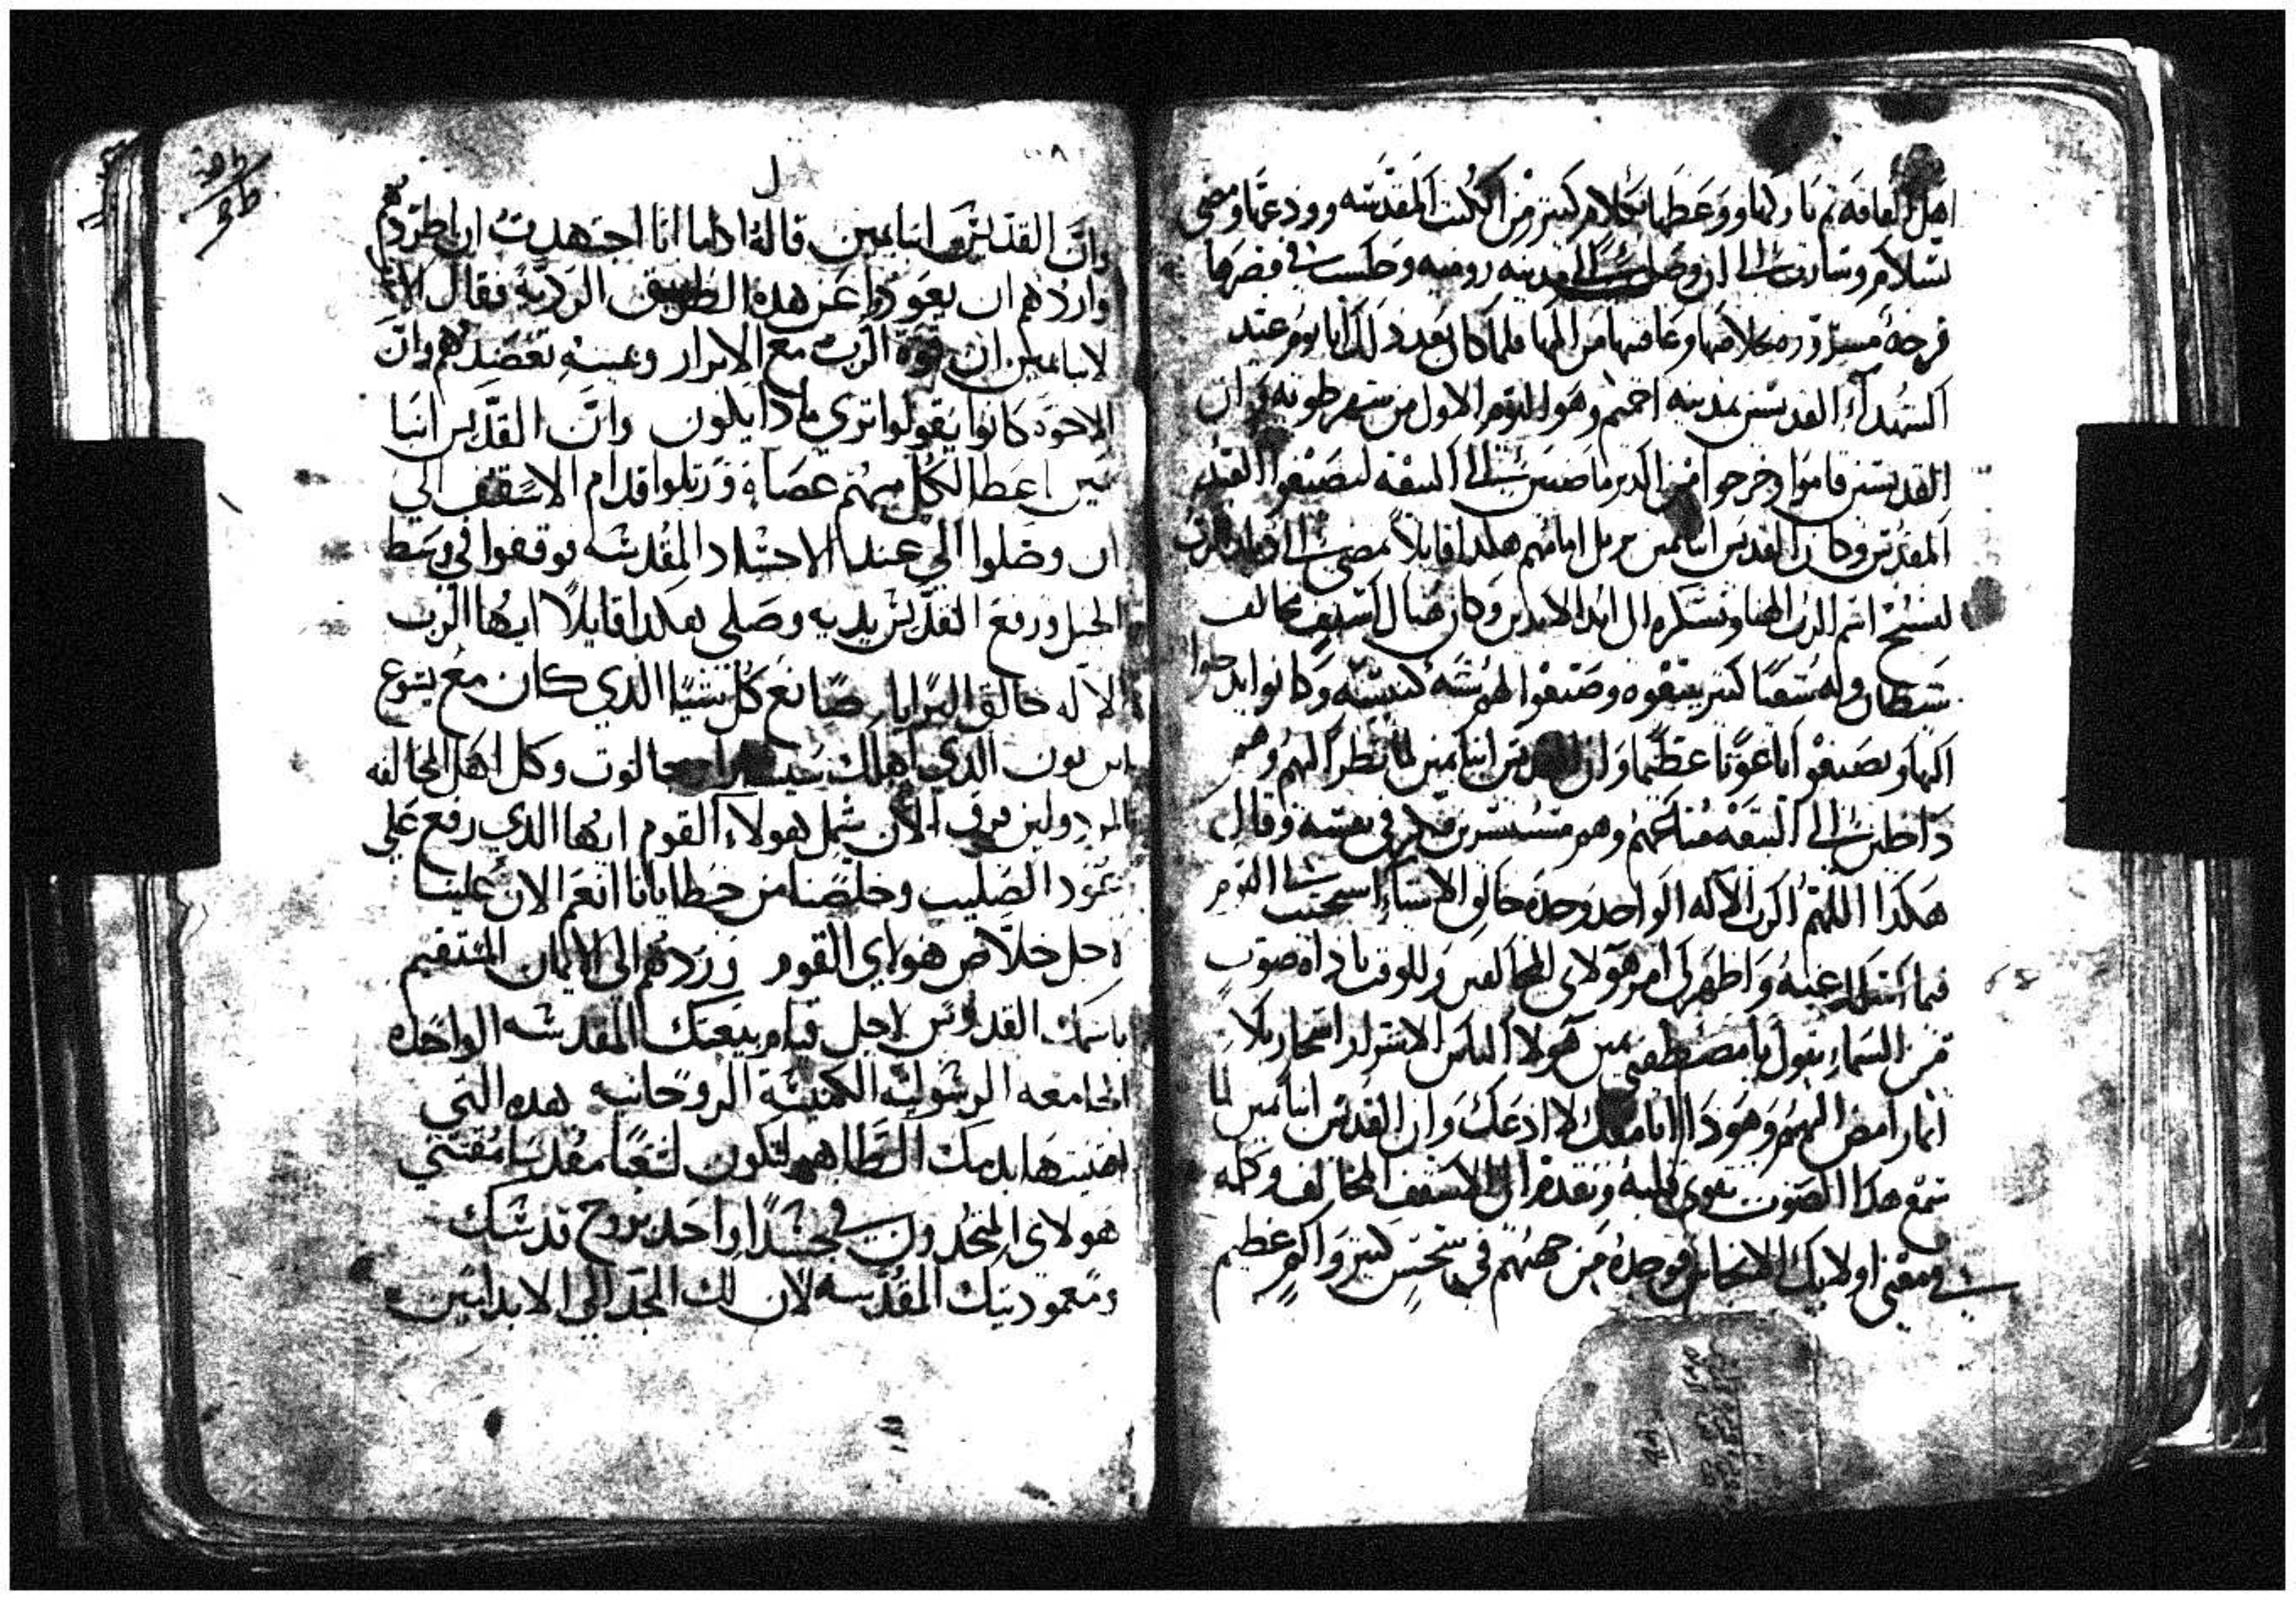 اهل العافه ثم باركها ووعظها بكلام كتير من الكتب المقدسه وودعها ومضى
بسلام وسارت الى ان وصلت الى مدينه روميه وجلست في قصرها
فرحة مسرورة بخلاصها وعافيتها من المها فلما كان بعد ذلك اتا يوم عيد
الشهدآء القديسين بمدينه اخميم وهو اليوم الاول من شهر طوبه وان
القديسين قاموا وخرجوا من الدير ماضيين الى البيعه ليصنعوا العيد
المقدس وكان القديس انبا يمين يرتل امامهم هكدا قايلا نمضي الى
لنسبح اسم الرب الهنا ونشكره الى ابد الابدين وكان هناك اسقف مخالف
شيطان وله شعبا كتير يتبعوه وصنعوا لهم شبه كنيسه وكانوا يدخلوا
اليها ويصنعوا اباغونا عظيما وان القديس انبا يمين لما نظر اليهم وهم
داخلين الى البيعه معه وهو مستبشرين فكر في نفسه وقال
هكدا اللهم الرب الاله الواحد وحده خالق الاشيآء استجيب اليوم
فيما اسلك عنه واظهر لي امر هولاى المخالفين وللوقت ناداه صوت
من السماء يقول يا مصطفى يمين هولا الناس الاشرار اشجار بلا
اتمار امض اليهم وهودا انا معك لا ادعك وان القديس انبا يمين لما
سمع هدا الصوت تقوى قلبه وتقدم الى الاسقف المخالف وكلمه
في معنى اولايك الانجاس فوجده من جهتهم في سخس كبير واكوم عظيم
ل
وان القديس انبا يمين قال له ادا ما انا اجتهدت ان اطردهم
واردهم ان يعودوا عن هذه الطريق الرديه فقال الاب
لانبا يمين ان قوة الرب مع الابرار ويمينه تعضدهم وان
الاخوة كانوا يقولوا ترى مادا يكون وان القديس انبا
يمين اعطا لكل منهم عصاه ورتلوا قدام الاسقف الي
ان وصلوا الي عند الاجساد المقدسه فوقفوا في وسط
الجبل ورفع القديس يديه وصلى هكدا قايلا ايها الرب
الاله خالق البرايا صانع كل شيا الدي كان مع يشوع
ابن نون الدي اهلك جالوت وكل اهل المخالفه
المردولين فرق الان شمل هولاء القوم ايها الدي رفع على
عود الصليب وخلصنا من خطايانا انعم الان علينا
لاجل خلاص هولاي القوم وردهم الى الايمان المستقيم
باسمك القدوس لاجل قيام بيعتك المقدسه الواحده
الجامعه الرسوليه الكنيسة الروحانيه هده التي
اقتنيتها بدمك الطاهر لتكون لشعبا مقدسا مقتنى
هولاى المتحدون في جسدا واحد بروح قدسك
ومعموديتك المقدسه لان لك المجد الي الابد امين